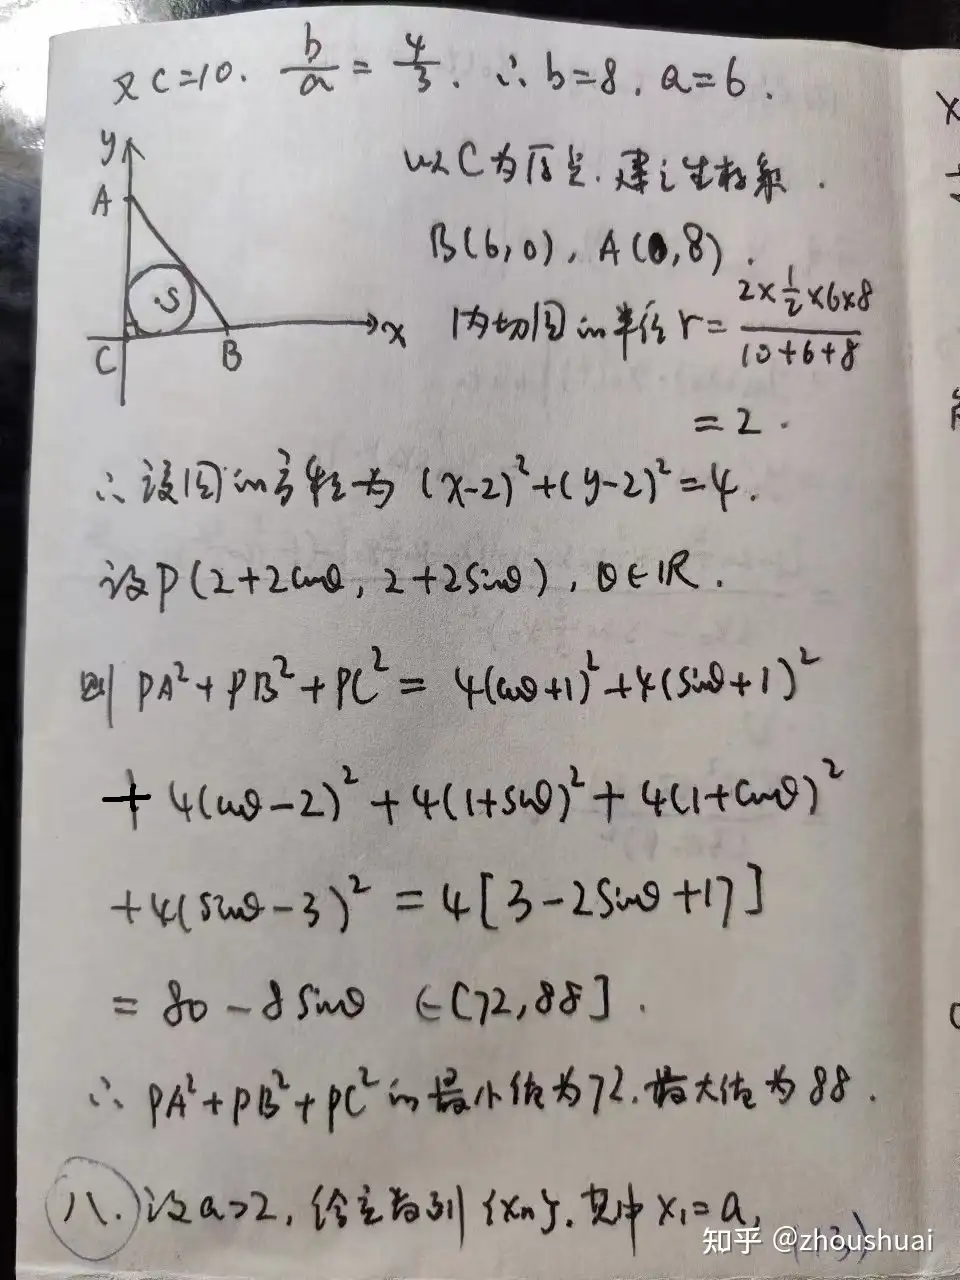 又 c=10. b/a = 4/3. ∴ b=8, a=6.
以C为原点. 建立坐标系.
y
A
S
C
B
x
B(6,0), A(0,8).
内切圆的半径 r = (2×1/2×6×8)/(10+6+8)
= 2.
∴ 设圆的方程为 (x-2)²+(y-2)²=4.
设P(2+2cosθ, 2+2sinθ), θ∈R.
则 PA²+PB²+PC² = 4(cosθ+1)²+4(sinθ+1)²
+ 4(cosθ-2)² + 4(1+sinθ)² + 4(1+cosθ)²
+4(sinθ-3)² = 4[3-2sinθ+17]
= 80-8sinθ ∈[72,88].
∴ PA²+PB²+PC²的最小值为72.最大值为88.
八. 设a>2, 给定数列{xn}. 其中 x₁=a,
知乎 @zhoushuai